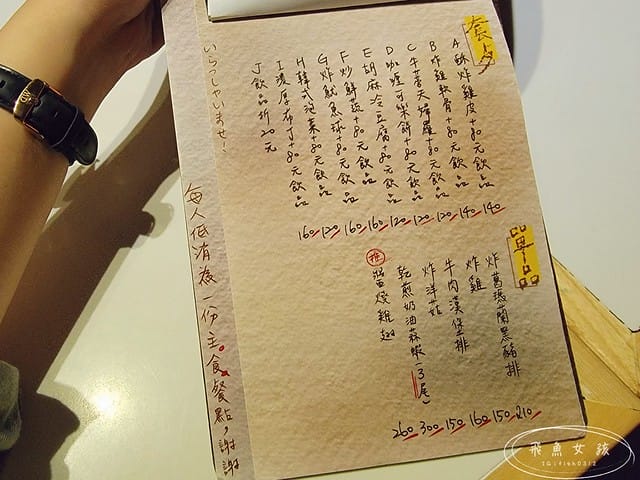 套歺
A 酥炸雞皮+80元飲品 140
B 炸雞軟骨+80元飲品 140
C 牛蒡天婦羅+80元飲品 120
D 咖哩可樂餅+80元飲品 120
E 胡麻冷豆腐+80元飲品 120
F 炒鮮蔬+80元飲品 160
G 炸魷魚球+80元飲品 160
H 韓式泡菜+80元飲品 120
I 濃厚布丁+80元飲品 160
J 飲品折20元
單品
炸葛瑪蘭黑豬排 210
炸雞 150
牛肉漢堡排 160
炸洋菇 150
乾煎奶油蒜蝦(3尾) 300
推 醬燒雞翅 260
いらっしゃいませ!
每人低消為一份主食餐點,謝謝
飛魚女孩
IG:fish0312